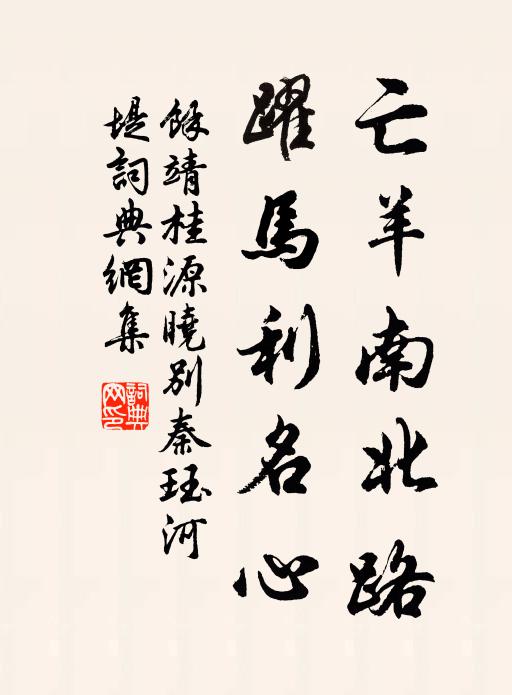 亡羊南北路
躍馬利名心
餘靖桂源曉別秦珏河
堤詞典網集
詞典
网印